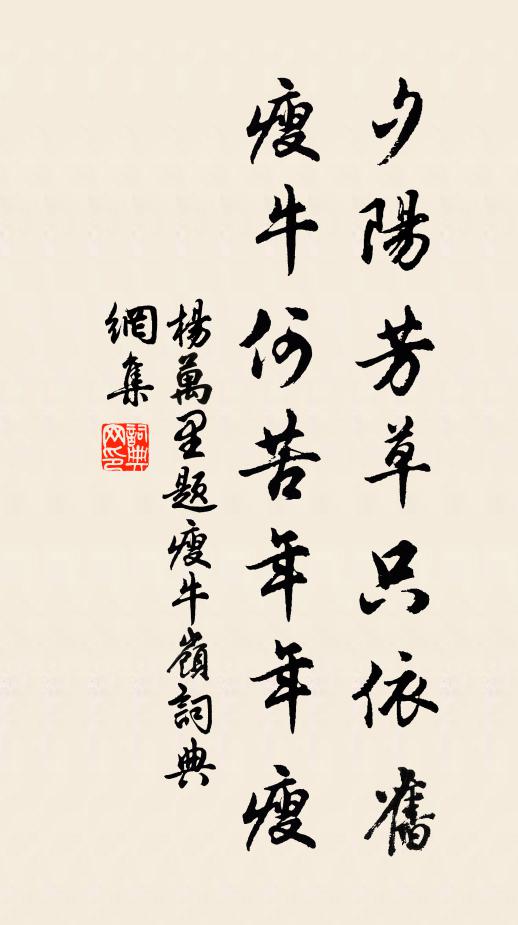 夕陽芳草只依舊
瘦牛何苦年年瘦
楊萬里題瘦牛嶺詞典
網集
詞典网印